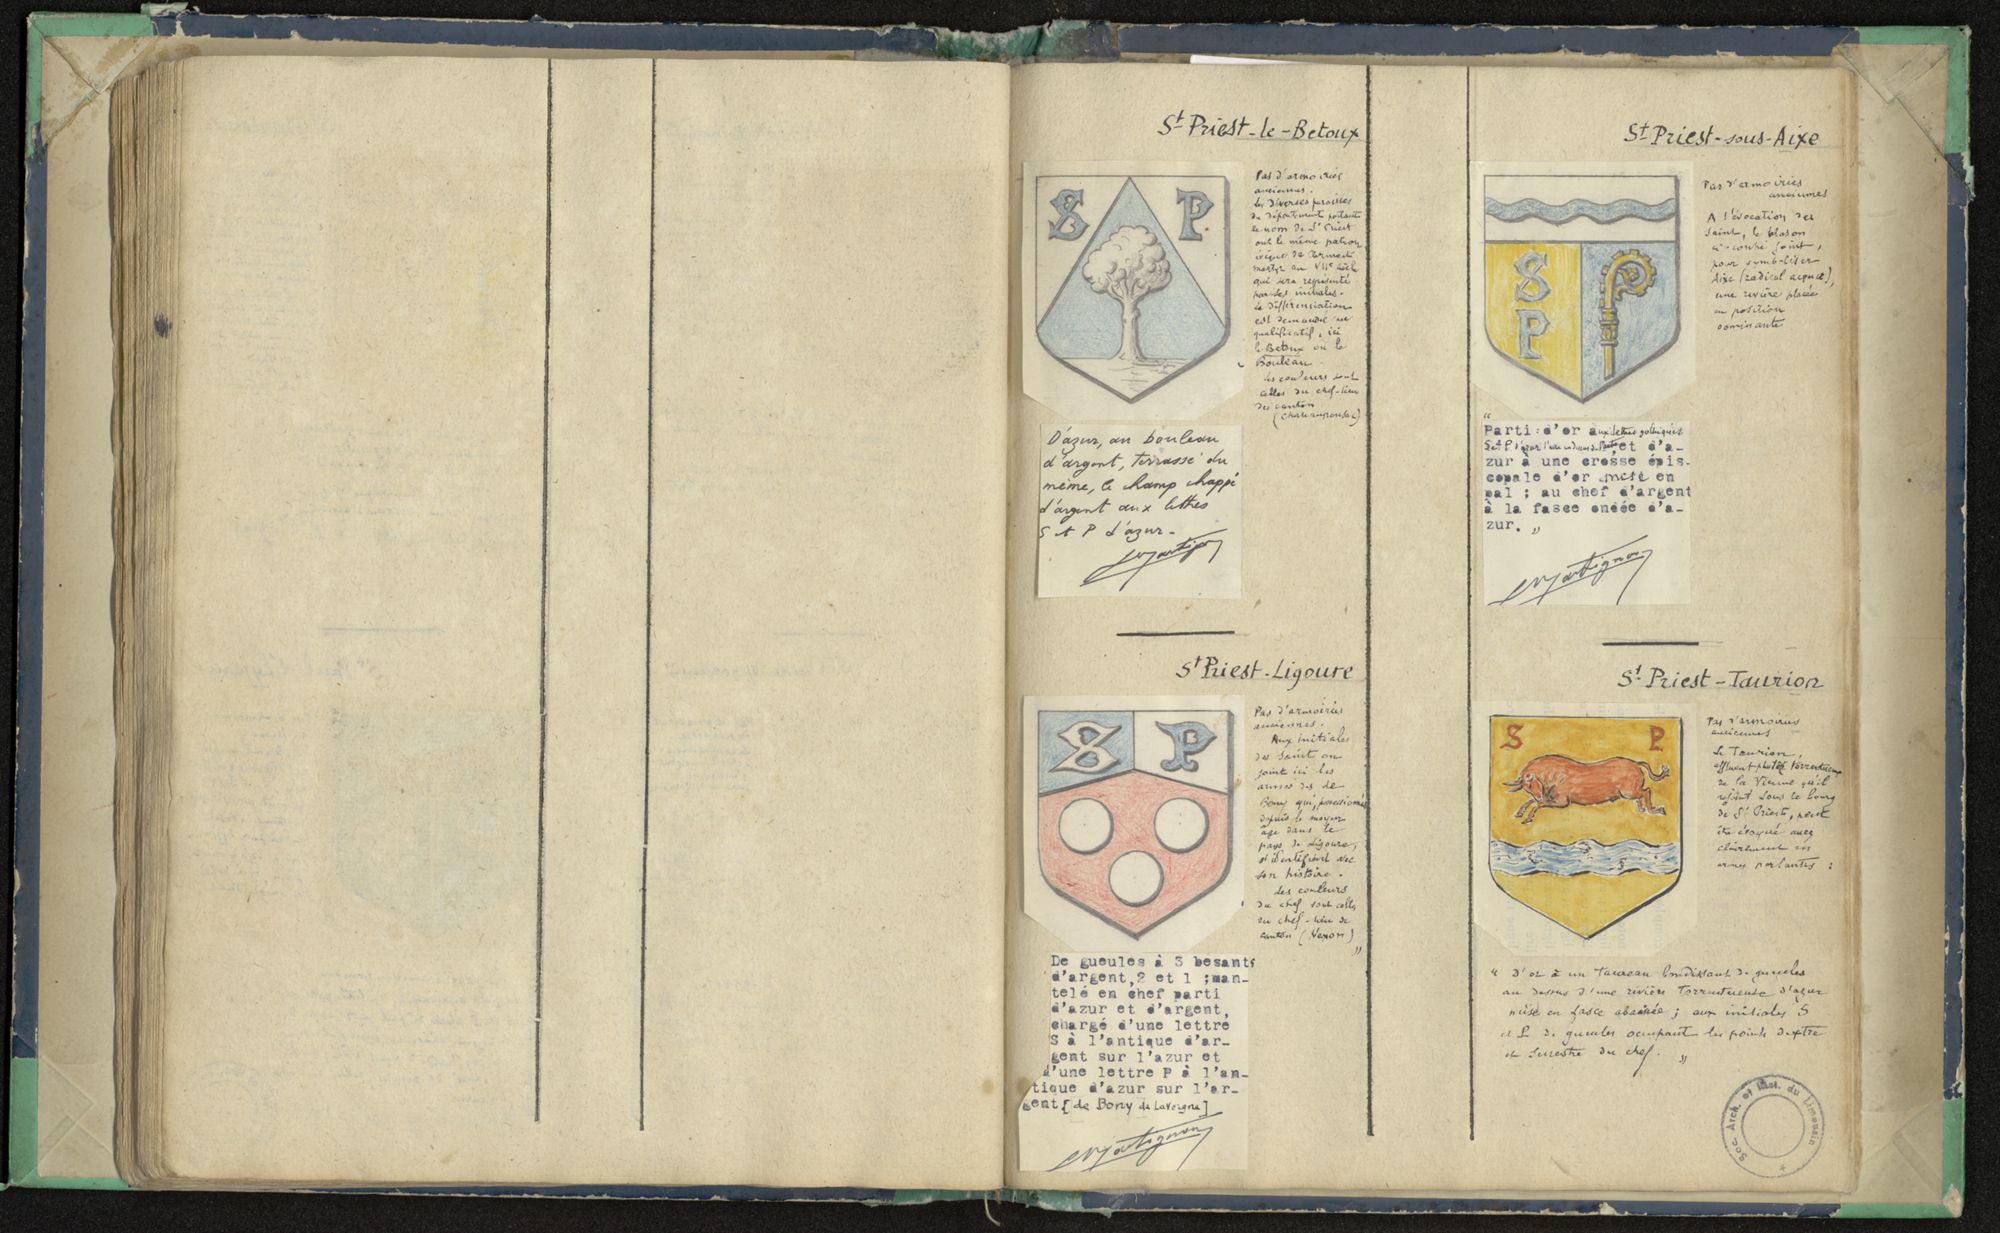 St Priest-le-Betoux
S P
Pas d'armoiries
anciennes.
les diverses paroisses
du département portant
le nom de St Priest
ont le même patron
évêque de Clermont
martyr au VIIe siècle
qui sera représenté
par des initiales.
la différenciation
est demandée au
qualificatif, ici
le Betoux ou le
Bouleau
les couleurs sont
celles du chef-lieu
de canton
(Chateauponsac)
D'azur, au bouleau
d'argent, terrassé du
même, le champ chappé
d'argent aux lettres
S et P d'azur.-
Martignon
St Priest-Ligoure
S P
Pas d'armoiries
anciennes.
Aux initiales
du saint on
joint ici les
armes des de
Bony qui, possessionnés
depuis le moyen
âge dans le
pays de Ligoure,
s'identifient avec
son histoire.
Les couleurs
du chef sont celles
du chef-lieu de
canton (Nexon)
"
De gueules à 3 besants
d'argent,2 et 1 ;man-
telé en chef parti
d'azur et d'argent,
chargé d'une lettre
S à l'antique d'ar-
gent sur l'azur et
d'une lettre P à l'an-
tique d'azur sur l'ar-
gent [de Bony de Lavergne]
Martignon
St Priest-sous-Aixe
S
P
Pas d'armoiries
anciennes
A l'évocation du
saint, le blason
ci-contre joint,
pour symboliser
Aixe (radical acquae),
une rivière placée
en position
dominante
"
Parti:d'or aux lettres gothiques
S et P d'azur l'une au dessus de l'autre, et d'a-
zur à une crosse épis-
copale d'or mise en
pal ; au chef d'argent
à la fasce ondée d'a-
zur. "
Martignon
St Priest-Taurion
S P
Pas d'armoiries
anciennes
Le Taurion,
affluent plutôt torrentueux
de la Vienne qu'il
rejoint sous le bourg
de St Priest, peut
être évoqué avec
clairement en
armes parlantes :
" D'or à un taureau bondissant de gueules
au dessus d'une rivière torrentueuse d'azur
mise en fasce abaissée ; aux initiales S
et P. de gueules occupant les points dextre
et senestre du chef. "
Soc. Arch. et Hist. du Limousin